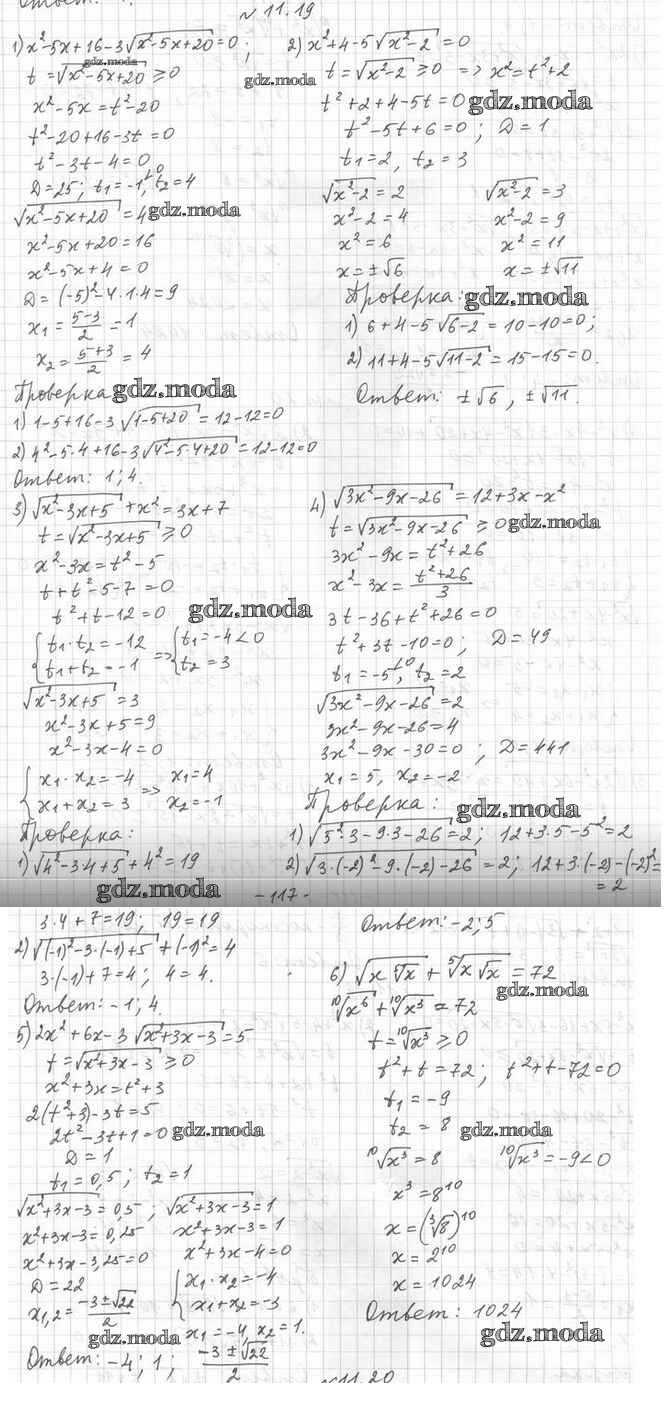 Ответ:
№ 11.19
1) x²-5x+16-3√(x²-5x+20)=0;
t=√(x²-5x+20) ≥0
gdz.moda
x²-5x=t²-20
t²-20+16-3t=0
t²-3t-4=0
D=25; t₁=-1<0, t₂=4
√(x²-5x+20)=4
gdz.moda
x²-5x+20=16
x²-5x+4=0
D=(-5)²-4·1·4=9
x₁=(5-3)/2=1
x₂=(5+3)/2=4
Проверка
gdz.moda
1) 1-5+16-3√(1-5+20)=12-12=0
2) 4²-5·4+16-3√(4²-5·4+20)=12-12=0
Ответ: 1; 4.
2) x²+4-5√(x²-2)=0
gdz.moda
t=√(x²-2) ≥0 => x²=t²+2
t²+2+4-5t=0
gdz.moda
t²-5t+6=0; D=1
t₁=2, t₂=3
√(x²-2)=2 √(x²-2)=3
x²-2=4 x²-2=9
x²=6 x²=11
x=±√6 x=±√11
Проверка:
gdz.moda
1) 6+4-5√(6-2)=10-10=0;
2) 11+4-5√(11-2)=15-15=0.
Ответ: ±√6, ±√11.
3) √(x²-3x+5)+x²=3x+7
t=√(x²-3x+5) ≥0
x²-3x=t²-5
t+t²-5-7=0
t²+t-12=0
gdz.moda
{t₁·t₂=-12 => {t₁=-4<0
t₁+t₂=-1 t₂=3
√(x²-3x+5)=3
x²-3x+5=9
x²-3x-4=0
{x₁·x₂=-4 => x₁=4
x₁+x₂=3 x₂=-1
Проверка:
1) √(4²-3·4+5)+4²=19
gdz.moda
4) √(3x²-9x-26)=12+3x-x²
t=√(3x²-9x-26) ≥0
gdz.moda
3x²-9x=t²+26
x²-3x=(t²+26)/3
3t-36+t²+26=0
t²+3t-10=0; D=49
t₁=-5<0, t₂=2
√(3x²-9x-26)=2
3x²-9x-26=4
3x²-9x-30=0; D=441
x₁=5, x₂=-2
Проверка:
gdz.moda
1) √(5²·3-9·3-26)=2; 12+3·5-5²=2
2) √(3·(-2)²-9·(-2)-26)=2; 12+3·(-2)-(-2)²=
=2
-117-
3·4+7=19; 19=19
2) √((-1)²-3·(-1)+5)+(-1)²=4
3·(-1)+7=4; 4=4.
Ответ: -1; 4.
Ответ: -2; 5
5) 2x²+6x-3√(x²+3x-3)=5
t=√(x²+3x-3) ≥0
x²+3x=t²+3
2(t²+3)-3t=5
2t²-3t+1=0
gdz.moda
D=1
t₁=0,5; t₂=1
√(x²+3x-3)=0,5; √(x²+3x-3)=1
x²+3x-3=0,25 x²+3x-3=1
x²+3x-3,25=0 x²+3x-4=0
D=22 {x₁·x₂=-4
x₁,₂=(-3±√22)/2 x₁+x₂=-3
gdz.moda
x₁=-4, x₂=1.
Ответ: -4; 1; (-3±√22)/2
6) √(x⁵√x)+⁵√(x√x)=72
gdz.moda
¹⁰√(x⁶)+¹⁰√(x³)=72
t=¹⁰√(x³) ≥0
t²+t=72; t²+t-72=0
t₁=-9
t₂=8
gdz.moda
¹⁰√(x³)=8 ¹⁰√(x³)=-9<0
x³=8¹⁰
x=(³√8)¹⁰
x=2¹⁰
x=1024
Ответ: 1024
gdz.moda
№11.20